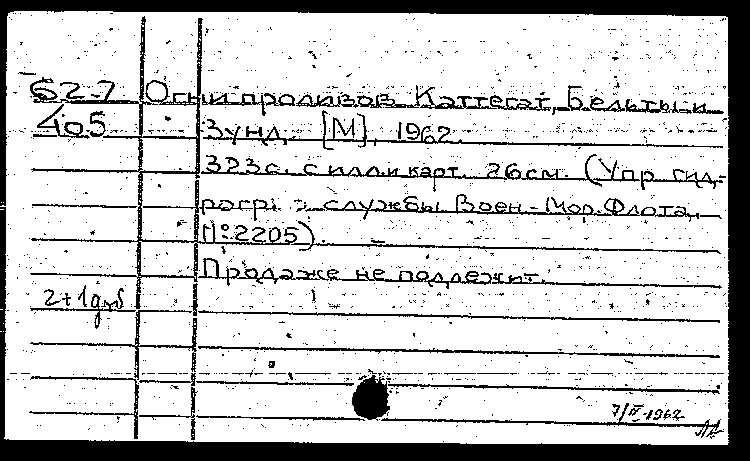 62-7 Огни проливов Каттегат, Бельты и
405 Зунд. [М], 1962.
323с. с илл. и карт. 26см. (Упр. гид-
рогр. службы Воен-Мор. Флота,
№2205).
Продаже не подлежит.
2+1дуб
7/IV-1962